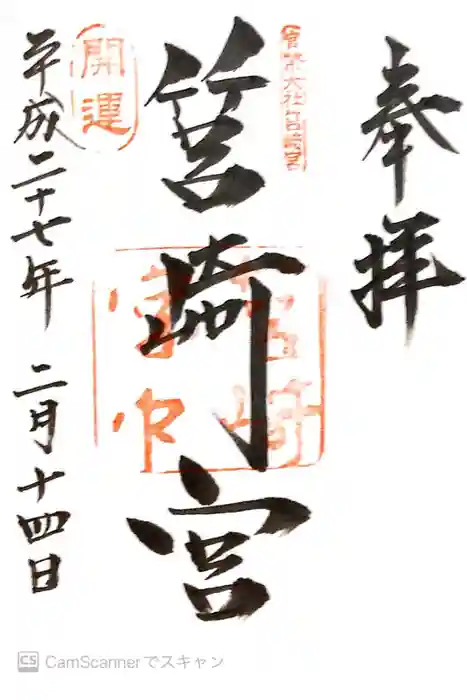 奉拝
官幣大社筥崎宮
筥崎宮
開運
平成二十七年 二月十四日
CS CamScannerでスキャン